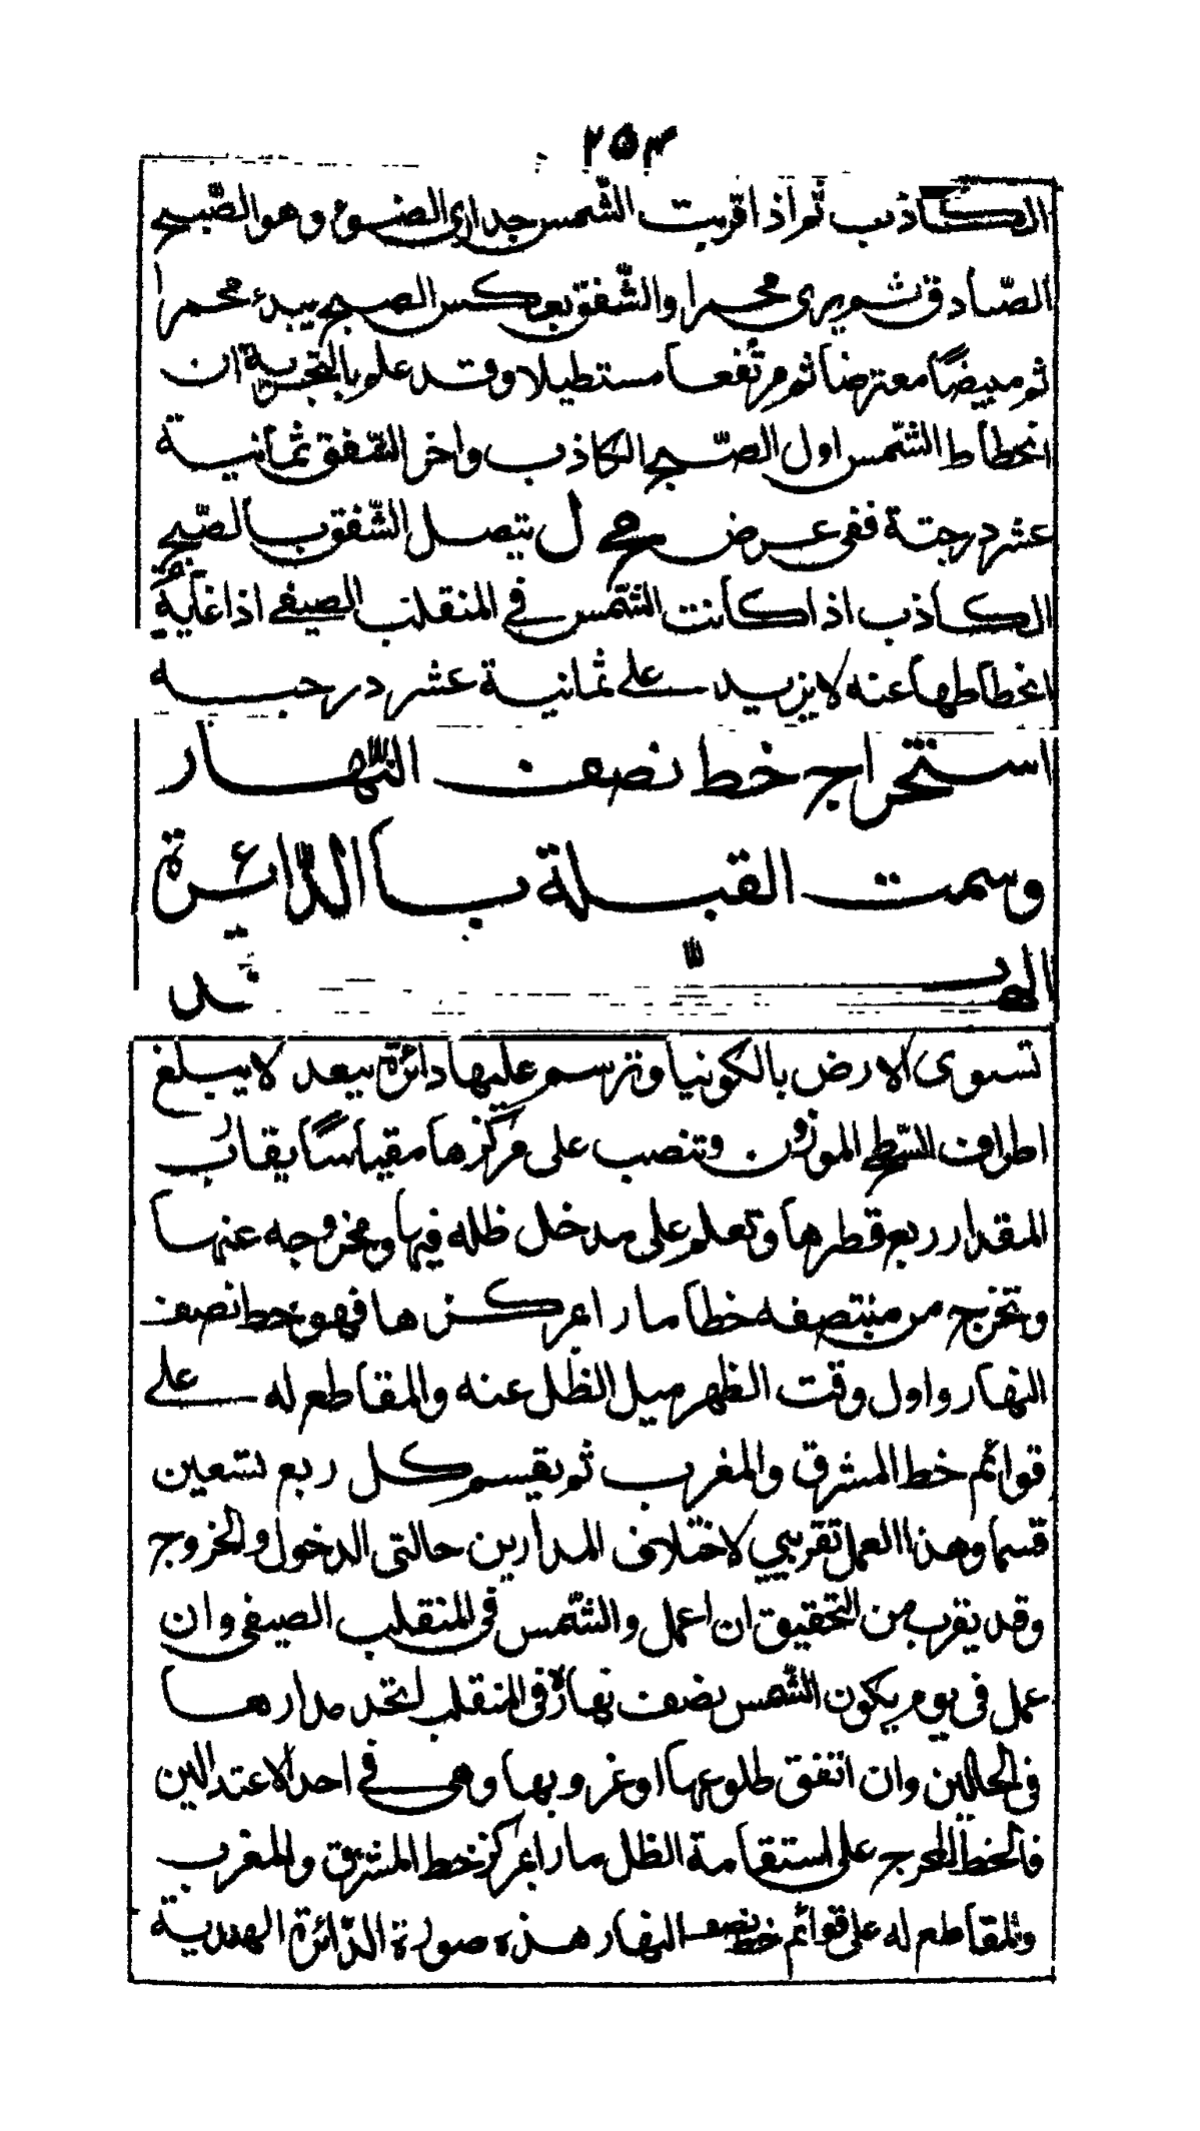 ٢٥٣
الكاذب ثم اذا قربت الشمس جدا رى الضوء وهو الصبح
الصادق ثم يرى محمرا والشفق بعكس الصبح يبدء محمرا
ثم مبيضا معترضا ثم مرتفعا مستطيلا وقد علم بالتجربة ان
انحطاط الشمس اول الصبح الكاذب واخر الشفق ثمانية
عشر درجة ففى عرض مح ل يتصل الشفق بالصبح
الكاذب اذا كانت الشمس في المنقلب الصيفے اذا غاية
انحطاطها عنه لا يزيد علے ثمانية عشر درجه
استخراج خط نصف النهار
وسمت القبلة بالدائرة
الهندية
تسوى الارض بالكونيا وترسم عليها دائرة ببعد لا يبلغ
اطراف السطح الموزون وتنصب على مركزها مقياسا يقارب
المقدار ربع قطرها وتعلم على مدخل ظله فيها ومخروجه عنها
وتخرج من منتصفه خطا مارا بمركزها فهو خط نصف
النهار واول وقت الظهر ميل الظل عنه والمقاطع له علے
قوائم خط المشرق والمغرب ثم يقسم كل ربع تسعين
قسما وهذا العمل تقريبي لاختلاف المدارين حالتى الدخول والخروج
وقد يقرب من التحقيق ان اعمل والشمس فى المنقلب الصيفى وان
عمل فى يوم يكون الشمس نصف نهاره فى المنقلب لتخد مدارها
فى الحالين وان اتفق طلوعها او غروبها وهى فے احد الاعتدالين
فالخط المخرج على استقامة الظل مارا بمركز خط المشرق والمغرب
والمقاطع له على قوائم خط نصف النهار هذه صورة الدائرة الهندية